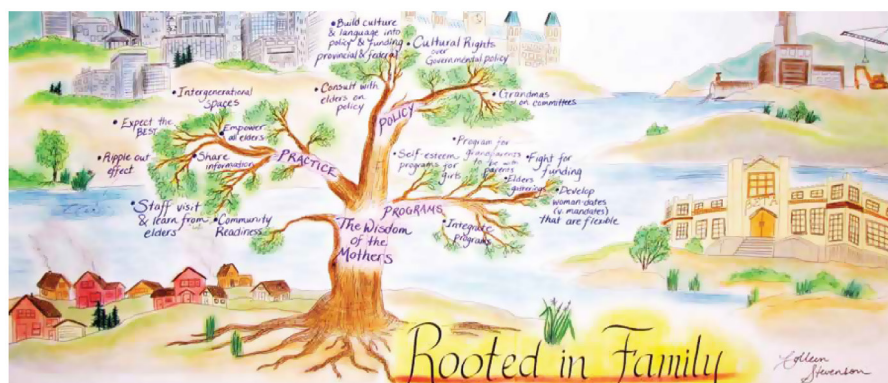 • Build culture
& language into
policy & funding
provincial & federal
• Cultural Rights
over
Governmental policy
• Consult with
elders on
policy
• Grandmas
on committees
POLICY
• Intergenerational
spaces
• Expect the
BEST
• Empower
all elders
• Ripple out
effect
• Share
information
PRACTICE
• Staff visit
& learn from
elders
• Community
Readiness
• Program for
grandparents
to be with
parents
• Self esteem
programs for
girls
• Fight for
funding
• Elders
gatherings
• Develop
woman-dates
(v. mandates)
that are flexible
PROGRAMS
• Integrate
programs
The Wisdom
of the
Mothers
Rooted in Family
Colleen
Stevenson